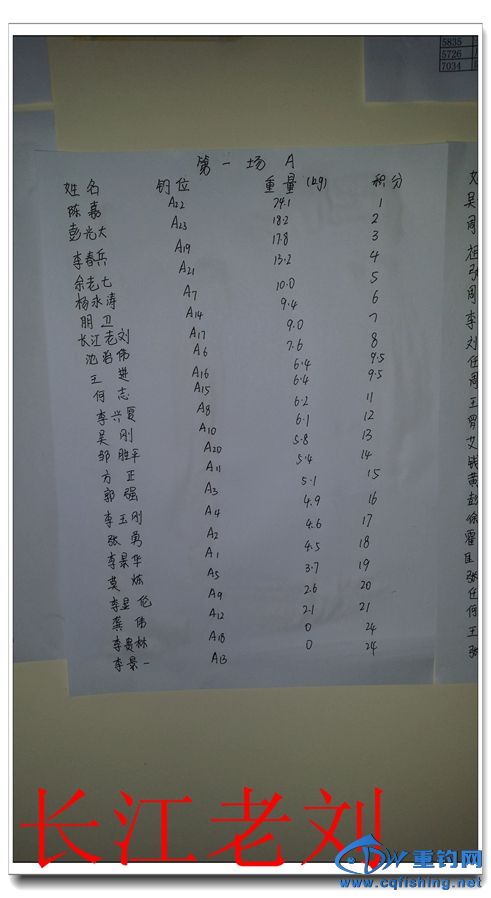 5835
5726
7034
第一场 A
姓名 钓位 重量(kg) 积分
陈嘉 A22 24.1 1
彭光大 A23 18.2 2
李春兵 A19 17.8 3
余老七 A21 13.2 4
杨永涛 A7 10.0 5
朋卫 A14 9.4 6
长江老刘 A17 9.0 7
沈治伟 A6 7.6 8
王进 A16 6.4 9.5
何志 A15 6.4 9.5
李兴厦 A8 6.2 11
吴刚 A10 6.1 12
邹胜平 A20 5.8 13
方正 A11 5.4 14
郭强 A3 5.1 15
李玉刚 A4 4.9 16
张勇 A2 4.6 17
李景华 A1 4.5 18
莫炼 A5 3.7 19
李显伦 A9 2.6 20
龚伟 A12 2.1 21
李贵林 A18 0 24
李景一 A13 0 24
长江老刘
重钓网
www.cqfishing.net